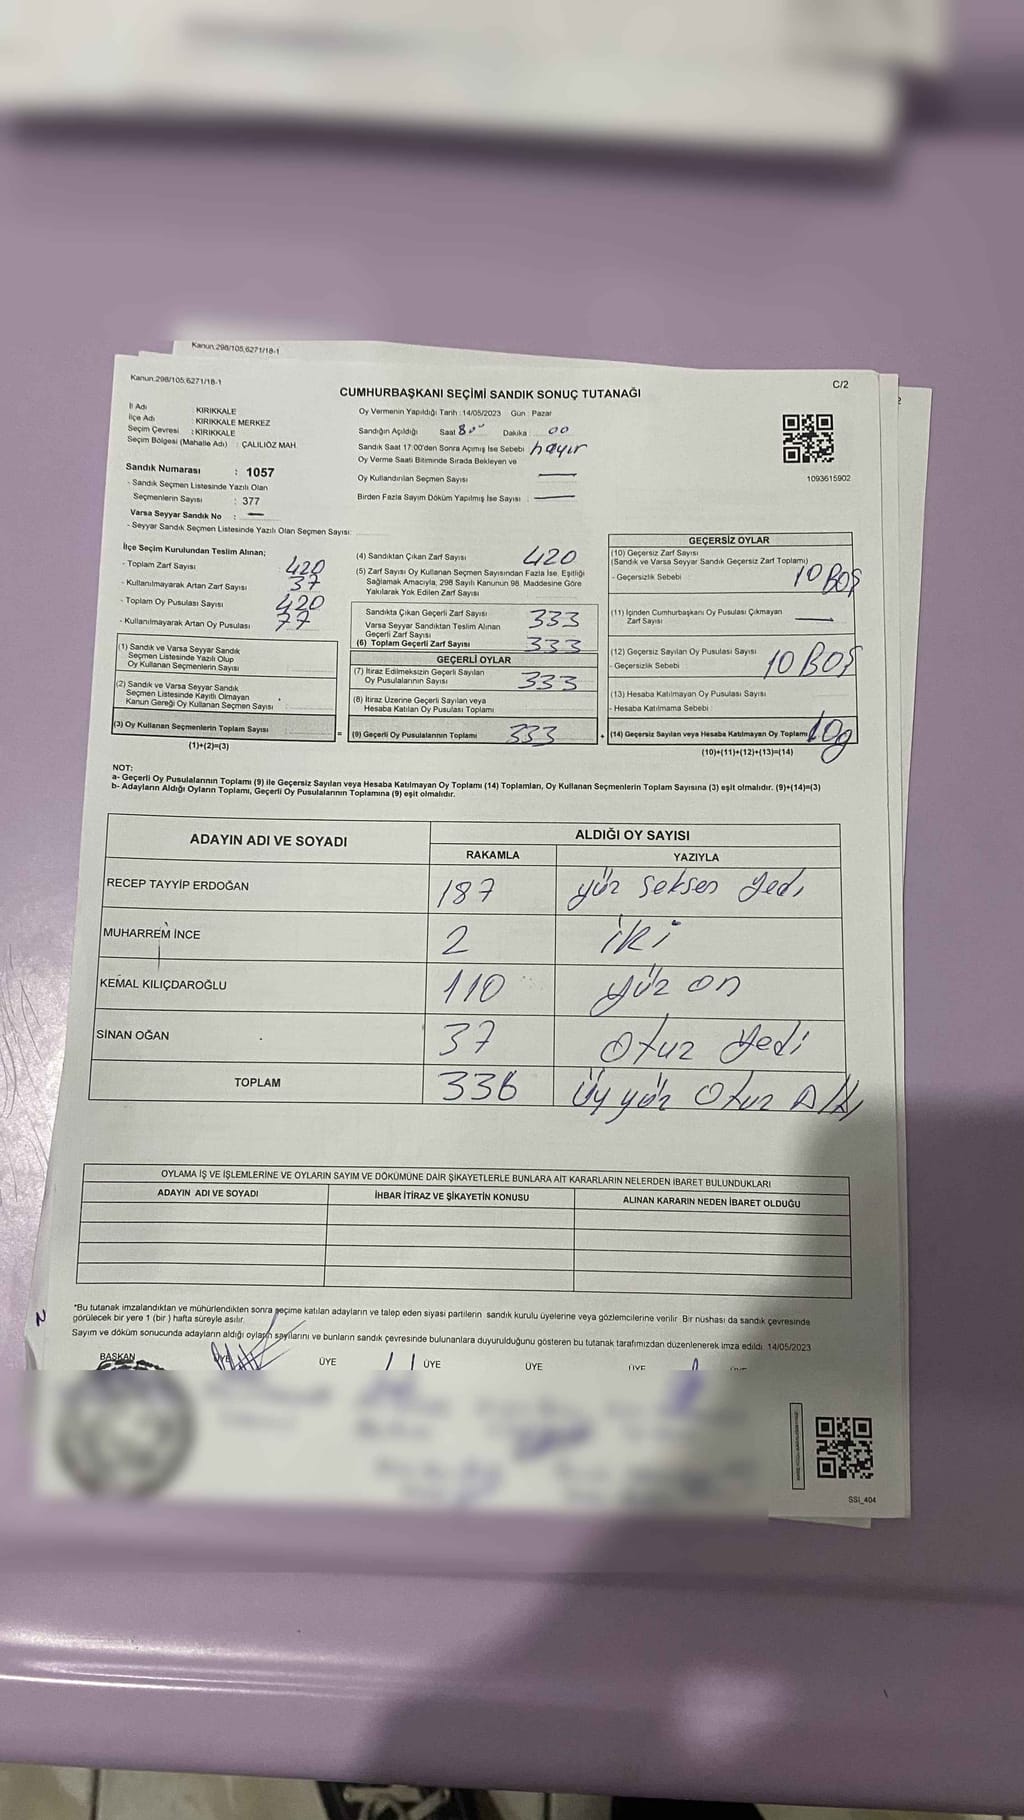 Kanun.298/105,6271/18-1
Kanun.298/105,6271/18-1
C/2
CUMHURBAŞKANI SEÇİMİ SANDIK SONUÇ TUTANAĞI
İl Adı KIRIKKALE
İlçe Adı : KIRIKKALE MERKEZ
Seçim Çevresi : KIRIKKALE
Seçim Bölgesi (Mahalle Adı) : ÇALILIÖZ MAH.
Sandık Numarası : 1057
- Sandık Seçmen Listesinde Yazılı Olan
Seçmenlerin Sayısı : 377
Varsa Seyyar Sandık No : —
- Seyyar Sandık Seçmen Listesinde Yazılı Olan Seçmen Sayısı:
Oy Vermenin Yapıldığı Tarih : 14/05/2023 Gün : Pazar
Sandığın Açıldığı Saat 8 00 Dakika : 00
Sandık Saat 17:00'den Sonra Açımış İse Sebebi hayır
Oy Verme Saati Bitiminde Sırada Bekleyen ve
Oy Kullandırılan Seçmen Sayısı —
Birden Fazla Sayım Döküm Yapılmış İse Sayısı : —
1093615902
İlçe Seçim Kurulundan Teslim Alınan;
- Toplam Zarf Sayısı 420
- Kullanılmayarak Artan Zarf Sayısı 37
- Toplam Oy Pusulası Sayısı 420
- Kullanılmayarak Artan Oy Pusulası 77
(1) Sandık ve Varsa Seyyar Sandık
Seçmen Listesinde Yazılı Olup
Oy Kullanan Seçmenlerin Sayısı
(2) Sandık ve Varsa Seyyar Sandık
Seçmen Listesinde Kayıtlı Olmayan
Kanun Gereği Oy Kullanan Seçmen Sayısı
(3) Oy Kullanan Seçmenlerin Toplam Sayısı
(1)+(2)=(3)
=
(4) Sandıktan Çıkan Zarf Sayısı 420
(5) Zarf Sayısı Oy Kullanan Seçmen Sayısından Fazla İse, Eşitliği
Sağlamak Amacıyla, 298 Sayılı Kanunun 98. Maddesine Göre
Yakılarak Yok Edilen Zarf Sayısı
Sandıkta Çıkan Geçerli Zarf Sayısı 333
Varsa Seyyar Sandıktan Teslim Alınan
Geçerli Zarf Sayısı
(6) Toplam Geçerli Zarf Sayısı 333
GEÇERLİ OYLAR
(7) İtiraz Edilmeksizin Geçerli Sayılan
Oy Pusulalarının Sayısı 333
(8) İtiraz Üzerine Geçerli Sayılan veya
Hesaba Katılan Oy Pusulası Toplamı
(9) Geçerli Oy Pusulalarının Toplamı 333
+
GEÇERSİZ OYLAR
(10) Geçersiz Zarf Sayısı
(Sandık ve Varsa Seyyar Sandık Geçersiz Zarf Toplamı)
- Geçersizlik Sebebi 10 BOŞ
(11) İçinden Cumhurbaşkanı Oy Pusulası Çıkmayan
Zarf Sayısı —
(12) Geçersiz Sayılan Oy Pusulası Sayısı
- Geçersizlik Sebebi 10 BOŞ
(13) Hesaba Katılmayan Oy Pusulası Sayısı
- Hesaba Katılmama Sebebi
(14) Geçersiz Sayılan veya Hesaba Katılmayan Oy Toplamı
(10)+(11)+(12)+(13)=(14)
NOT:
a- Geçerli Oy Pusulalarının Toplamı (9) ile Geçersiz Sayılan veya Hesaba Katılmayan Oy Toplamı (14) Toplamları, Oy Kullanan Seçmenlerin Toplam Sayısına (3) eşit olmalıdır. (9)+(14)=(3)
b- Adayların Aldığı Oyların Toplamı, Geçerli Oy Pusulalarının Toplamına (9) eşit olmalıdır.
ADAYIN ADI VE SOYADI
ALDIĞI OY SAYISI
RAKAMLA YAZIYLA
RECEP TAYYİP ERDOĞAN 187 yüz seksen yedi
MUHARREM İNCE 2 iki
KEMAL KILIÇDAROĞLU 110 yüz on
SİNAN OĞAN 37 Otuz yedi
TOPLAM 336 Üy yüz Otuz Altı
OYLAMA İŞ VE İŞLEMLERİNE VE OYLARIN SAYIM VE DÖKÜMÜNE DAİR ŞİKAYETLERLE BUNLARA AİT KARARLARIN NELERDEN İBARET BULUNDUKLARI
ADAYIN ADI VE SOYADI İHBAR İTİRAZ VE ŞİKAYETİN KONUSU ALINAN KARARIN NEDEN İBARET OLDUĞU
*Bu tutanak imzalandıktan ve mühürlendikten sonra seçime katılan adayların ve talep eden siyasi partilerin sandık kurulu üyelerine veya gözlemcilerine verilir. Bir nüshası da sandık çevresinde
görülecek bir yere 1 (bir) hafta süreyle asılır.
Sayım ve döküm sonucunda adayların aldığı oyların sayılarını ve bunların sandık çevresinde bulunanlara duyurulduğunu gösteren bu tutanak tarafımızdan düzenlenerek imza edildi. 14/05/2023
BAŞKAN ÜYE ÜYE ÜYE ÜYE
SSI_404